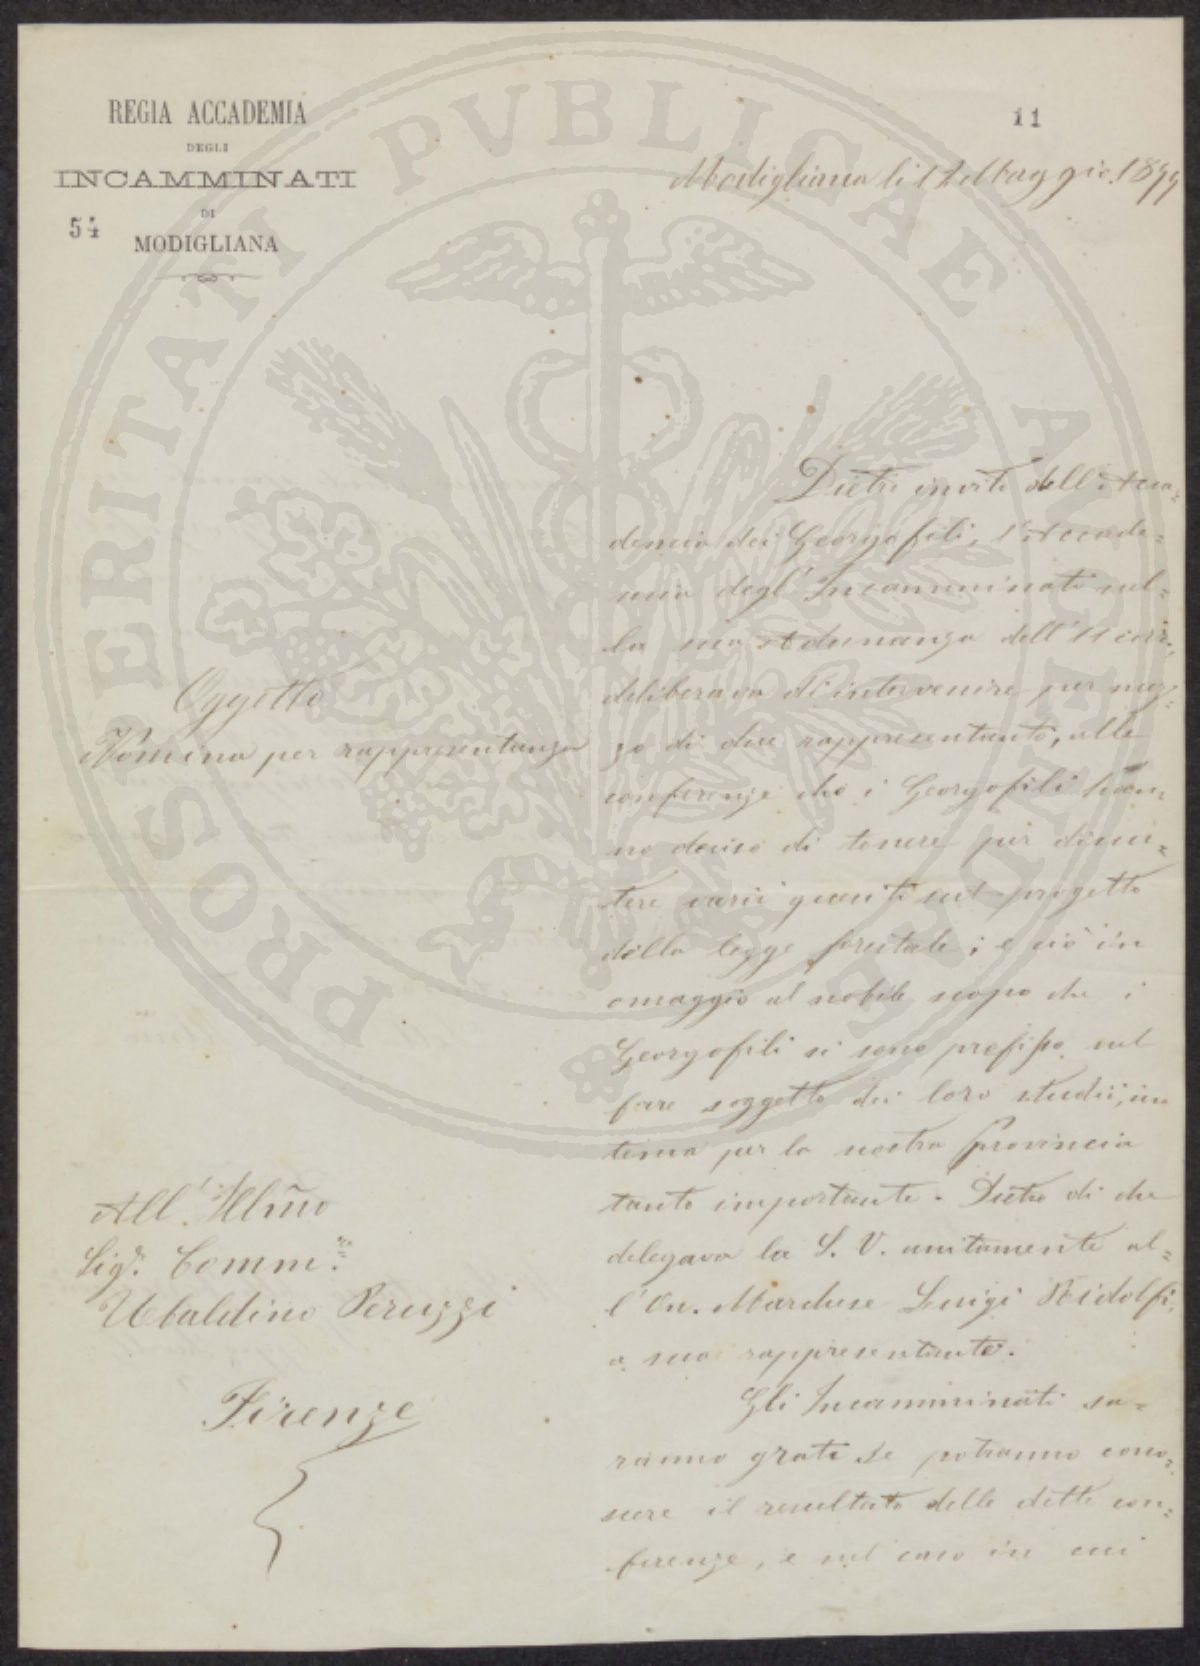 REGIA ACCADEMIA
DEGLI
INCAMMINATI
DI
MODIGLIANA
54
11
Modigliana li 12 Maggio 1877
Dietro invito dell'Acca=
demia dei Georgofili, l'Accade=
mia degl'Incamminati nel=
la sua Adunanza dell'11 corr.
deliberava di intervenire per mez=
zo di due rappresentanti, alle
conferenze che i Georgofili han=
no deciso di tenere per discu=
tere varii quesiti sul progetto
della legge forestale; e ciò in
omaggio al nobile scopo che i
Georgofili si sono prefisso nel
fare soggetto dei loro studii, un
tema per la nostra Provincia
tanto importante. Dietro di che
delegava la S. V. unitamente al=
l'On. Marchese Luigi Ridolfi,
a suo rappresentante.
Gli Incamminati sa=
ranno grati se potranno cono=
scere il resultato delle dette con=
ferenze, e nel caso in cui
Oggetto
Nomina per rappresentanza
All'Illmo
Sigr. Comm.re
Ubaldino Peruzzi
Firenze
PROSPERITATI PUBLICAE AUGENDAE